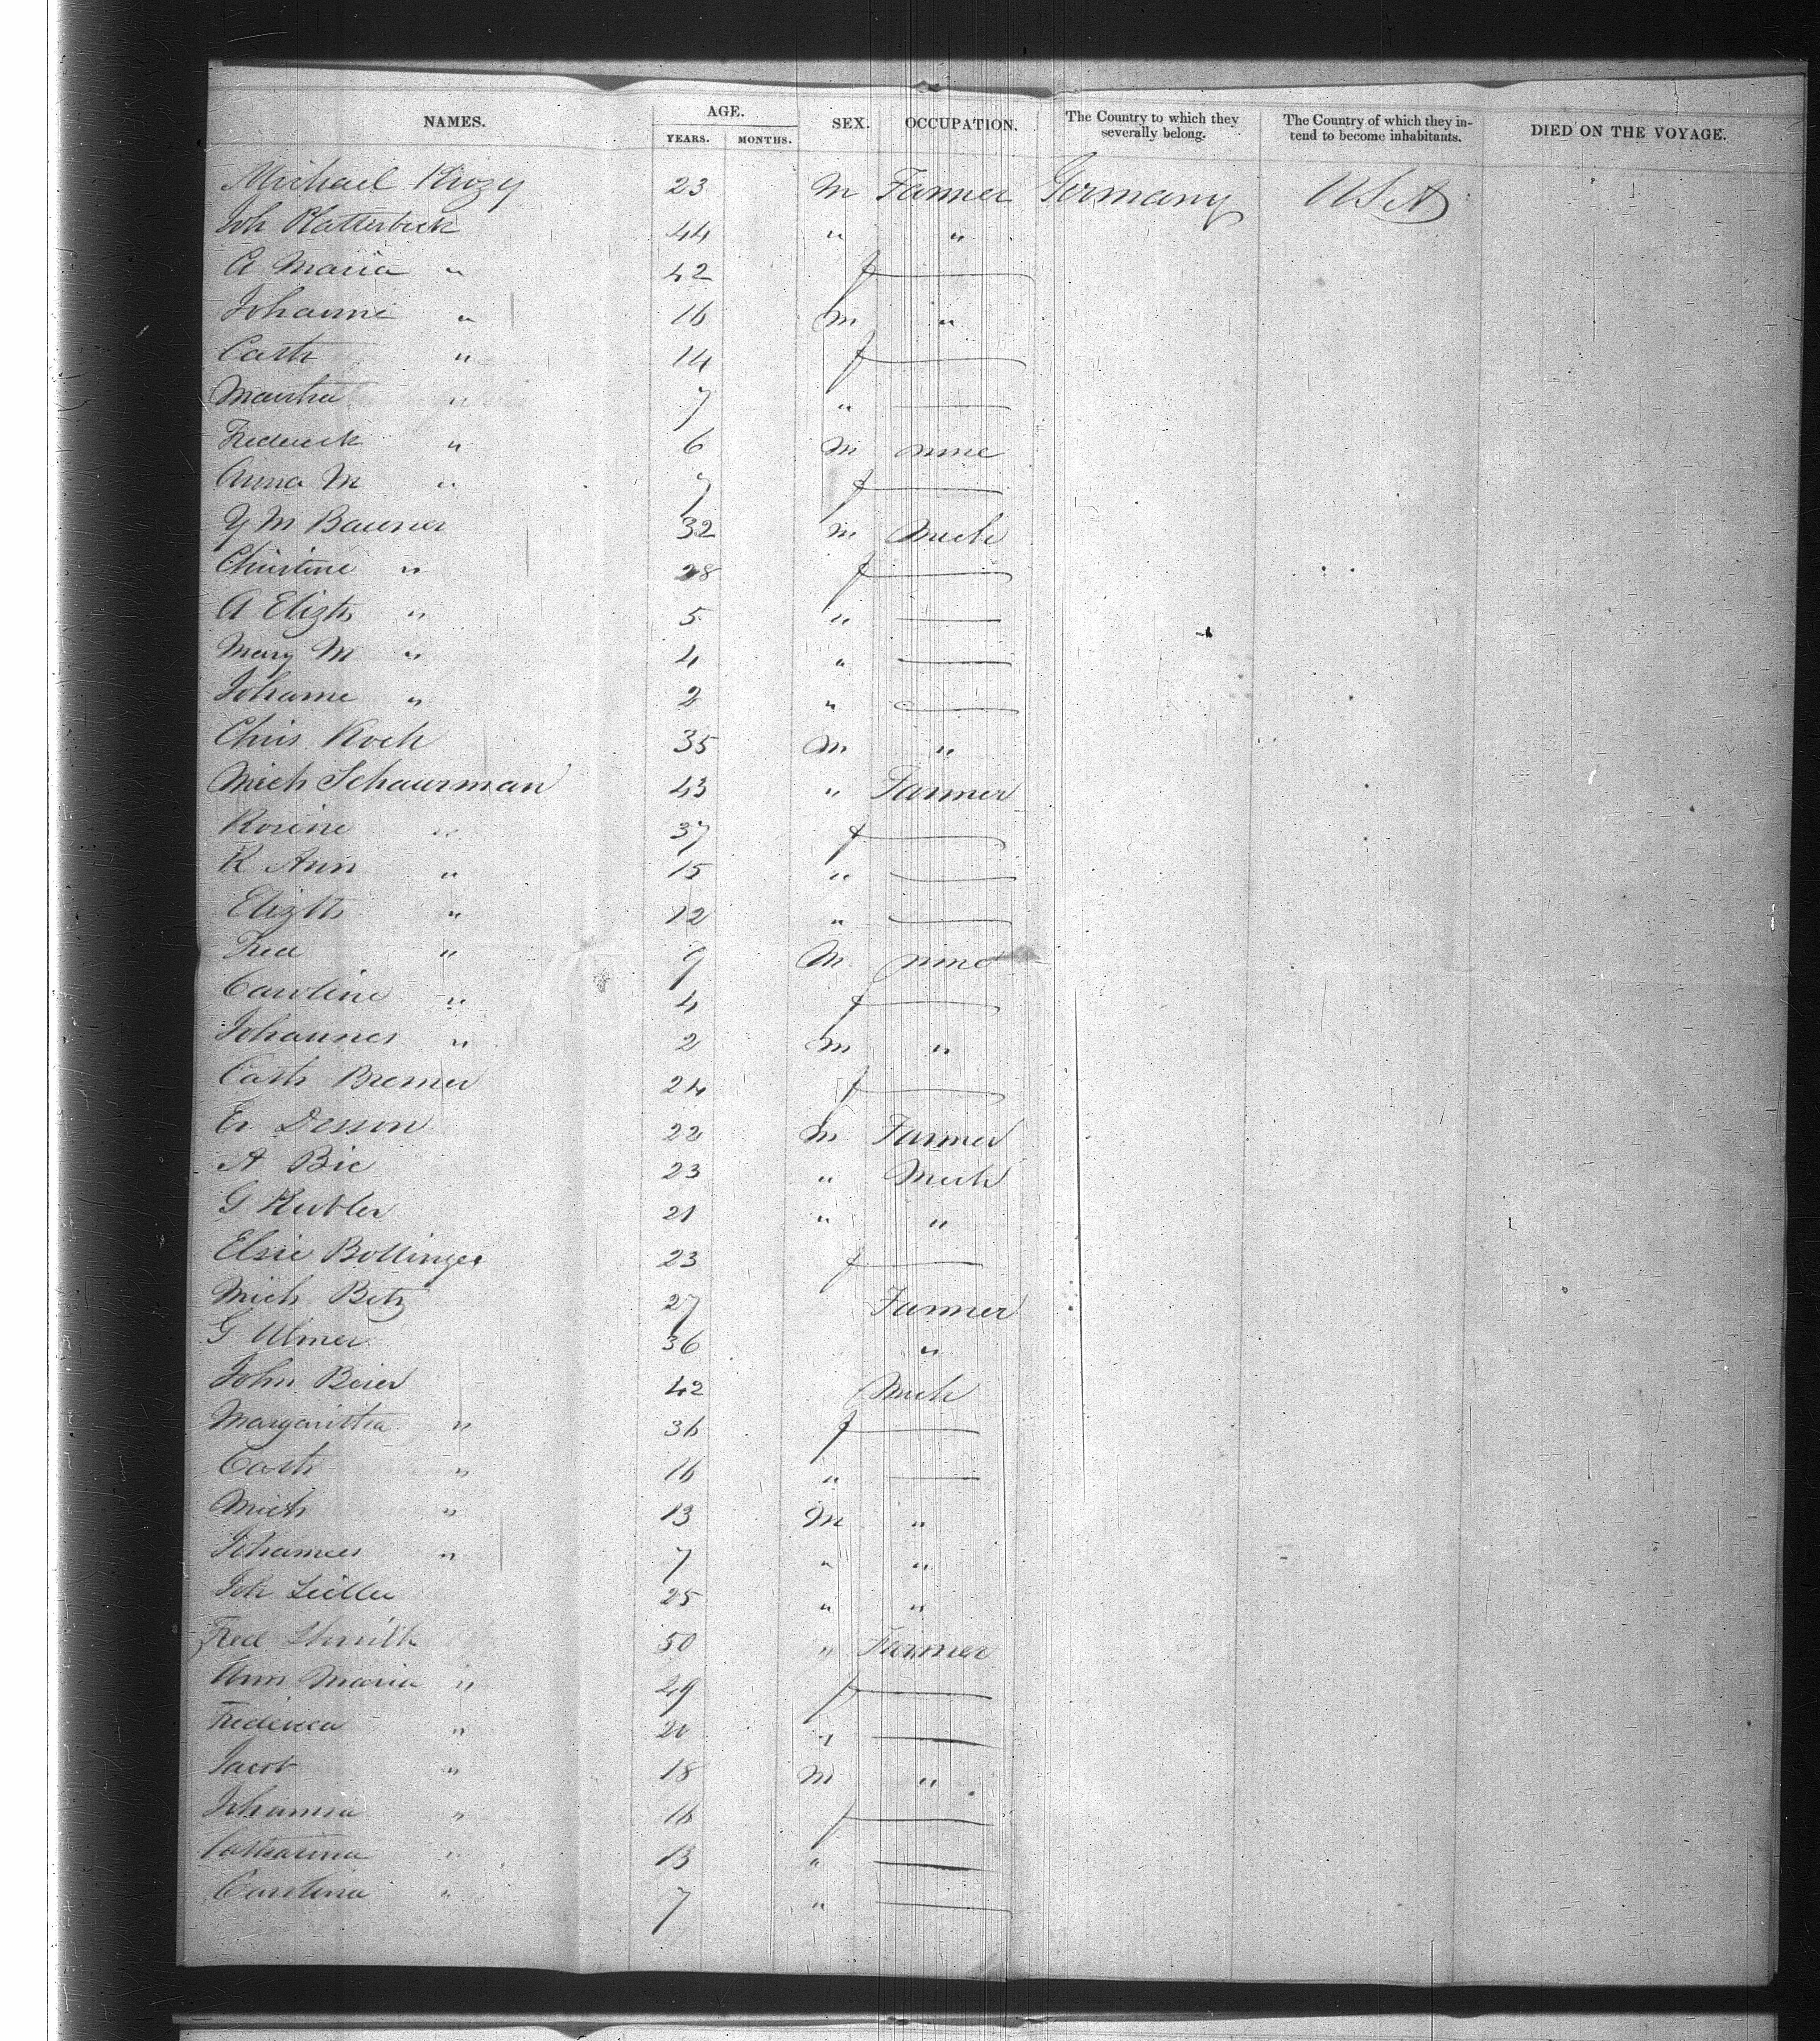 NAMES. AGE. SEX. OCCUPATION. The Country to which they severally belong. The Country of which they intend to become inhabitants. DIED ON THE VOYAGE.
YEARS. MONTHS.
Michael 23 m Farmer Germany USA
Joh Platterbeck 44 " "
A Maria " 42 f —
Johanne " 16 m "
Cath " 14 f —
Martha " 7 " —
Frederick " 6 m none
Anna M " 7 f —
Y M Baurer 32 m Mech
Christine " 28 f —
A Elizth " 5 " —
Mary M " 4 " —
Johanne " 2 " —
Chris Koch 35 m "
Mich Schaurman 43 " Farmer
Rosine " 37 f —
R Ann " 15 " —
Elizth " 12 " —
Fred " 9 m none
Caroline " 4 f —
Johannes " 2 m "
Cath Bremer 24 f —
Er Desson 22 m Farmer
A Bie 23 " Mech
G Kubler 21 " "
Elsie Bollinger 23 f —
Mich Betz 27 Farmer
G Ulmer 36 "
John Beier 42 Mech
Margarittha " 36 f —
Cath " 16 " —
Mich " 13 m "
Johannes " 7 " "
Joh 25 " "
Fred Shmith 50 " Farmer
Ann Maria " 49 f —
Frederica " 20 " —
Jacob " 18 m "
Johanna " 16 f —
Catharina " 13 " —
Carolina " 7 " —